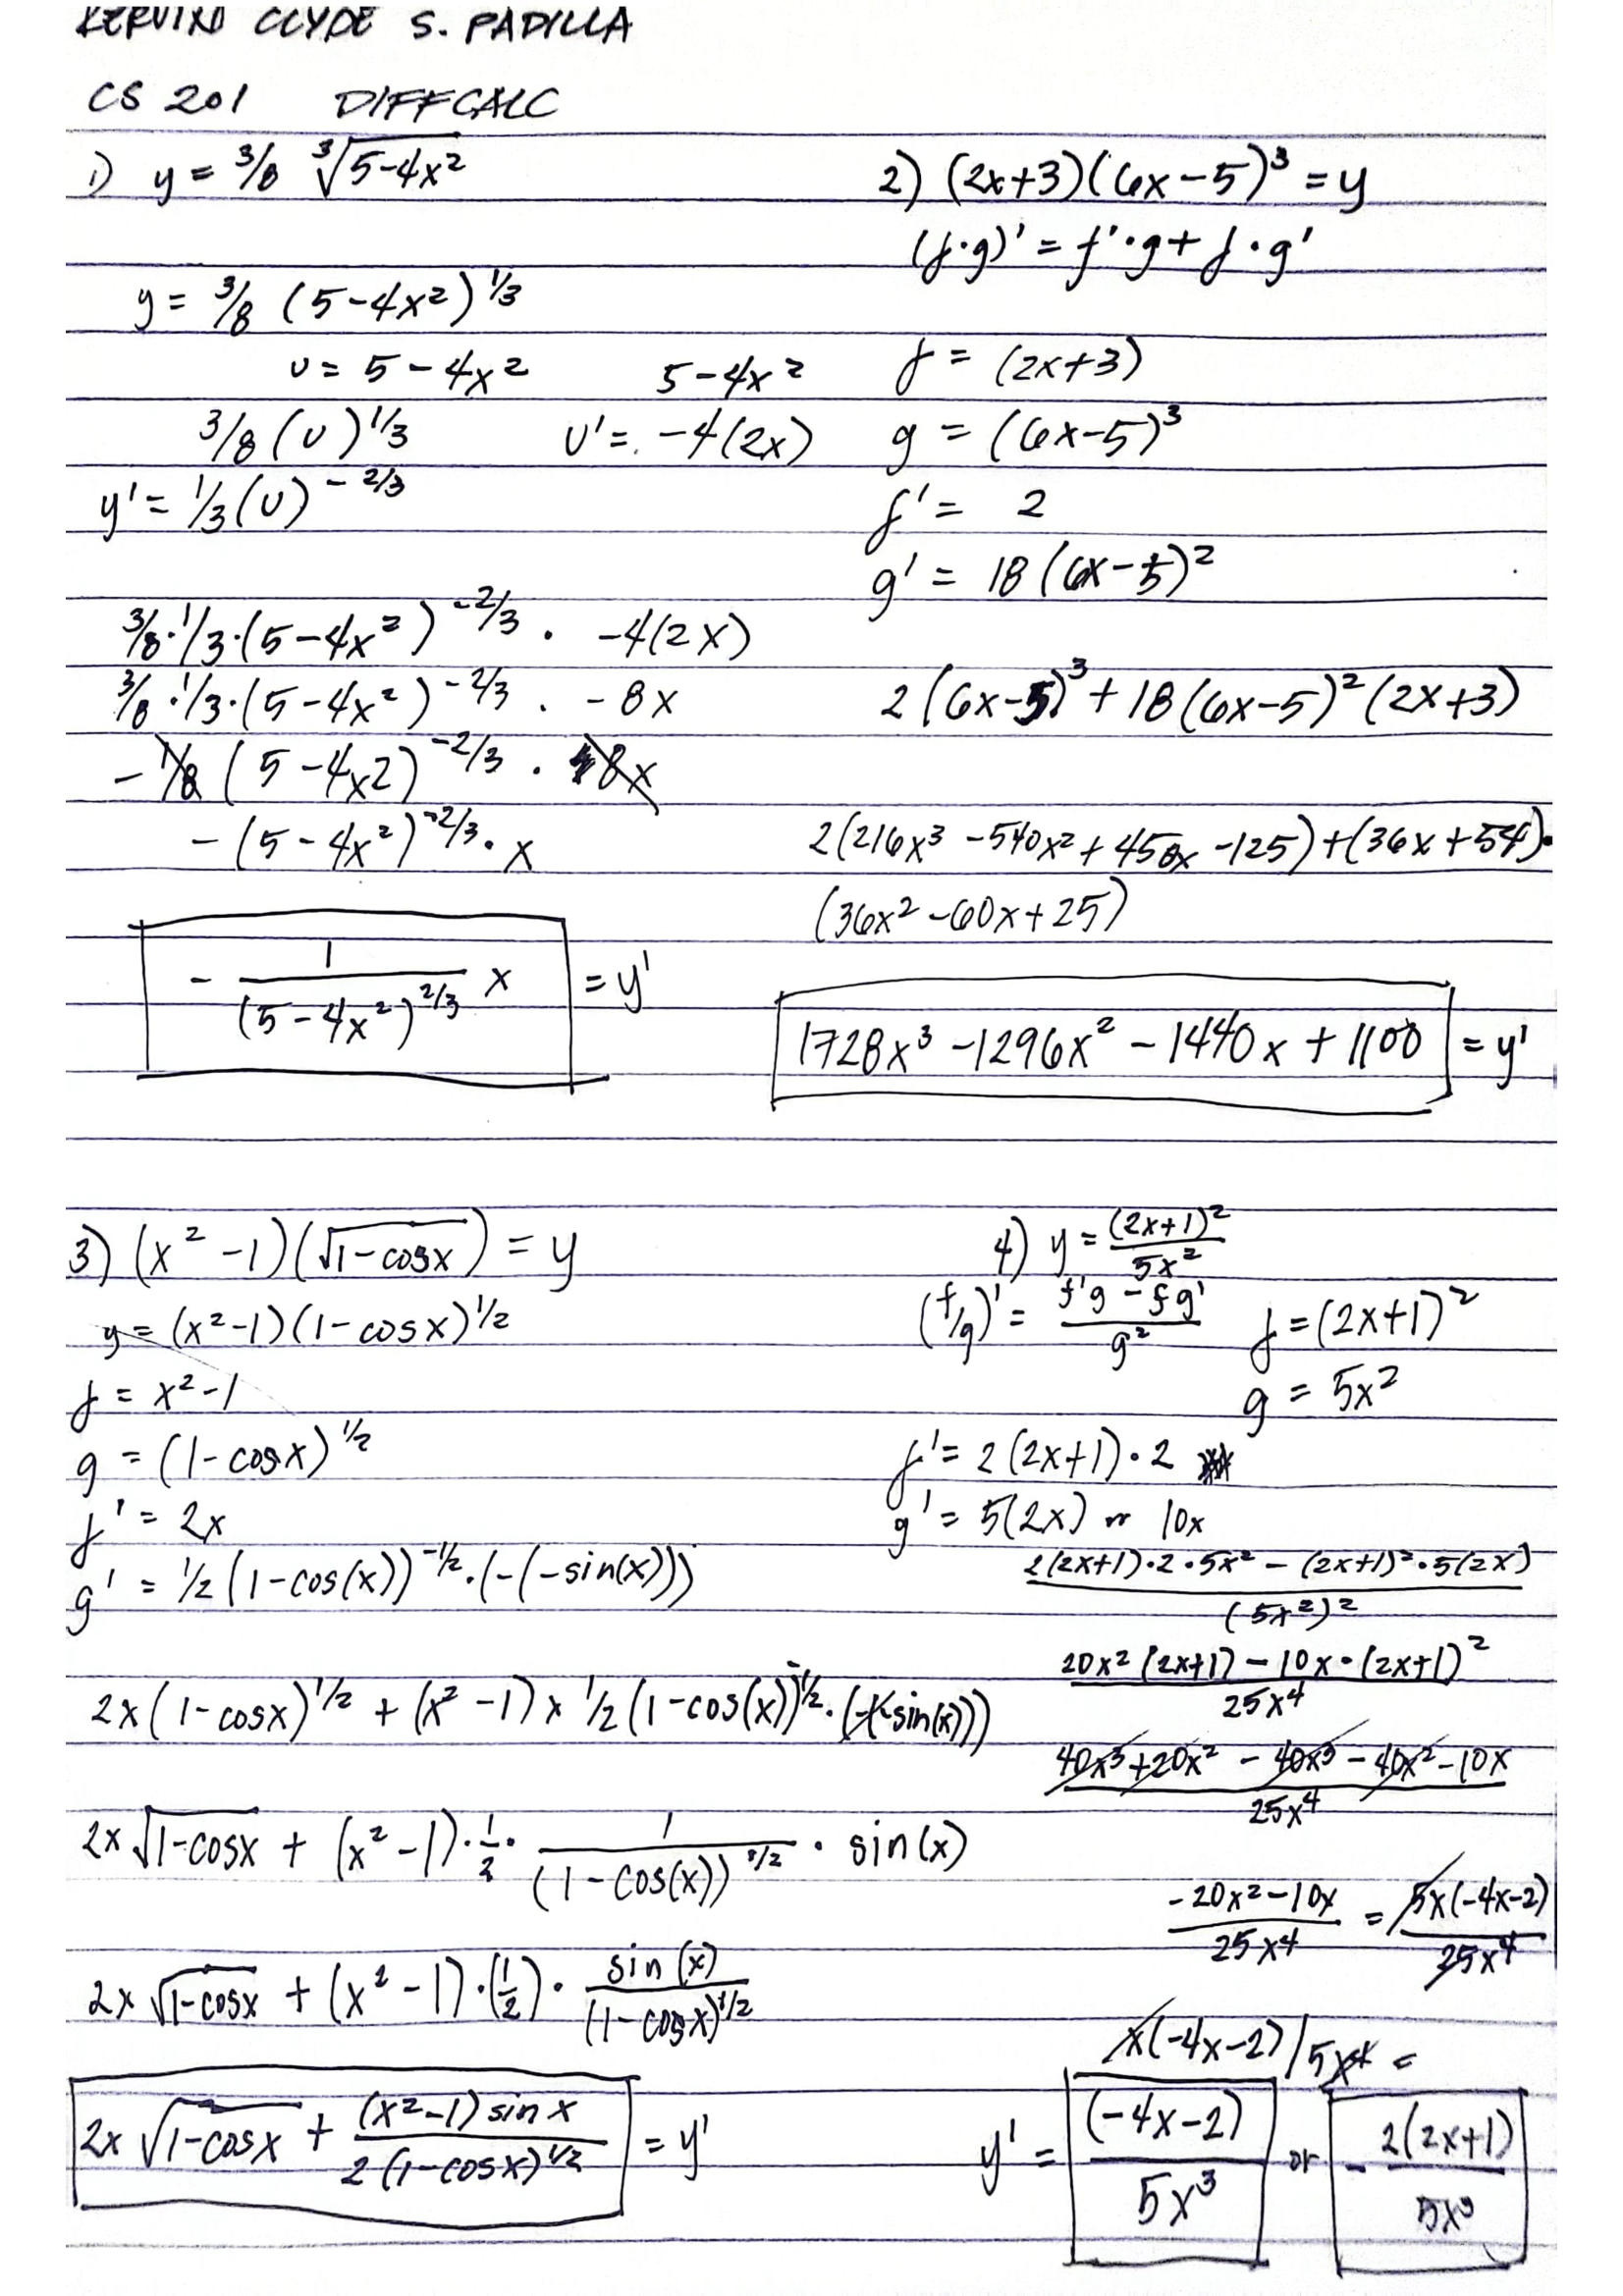 KERVIN CLYDE S. PADILLA
CS 201 DIFFCALC
1) y = 3/8 ∛(5-4x²)
y = 3/8 (5-4x²)^1/3
u = 5-4x² 5-4x²
3/8 (u)^1/3 u' = -4(2x)
y' = 1/3 (u)^-2/3
3/8 · 1/3 · (5-4x²)^-2/3 · -4(2x)
3/8 · 1/3 · (5-4x²)^-2/3 · -8x
- 1/8 (5-4x2)^-2/3 · 8x
- (5-4x²)^-2/3 · x
- 1/(5-4x²)^2/3 x = y'
2) (2x+3)(6x-5)³ = y
(f·g)' = f'·g + f·g'
f = (2x+3)
g = (6x-5)³
f' = 2
g' = 18(6x-5)²
2(6x-5)³ + 18(6x-5)²(2x+3)
2(216x³ -540x² + 450x -125) + (36x+54)·
(36x² -60x+25)
1728x³ -1296x² -1440x + 1100 = y'
3) (x² -1)(√(1-cosx)) = y
y = (x²-1)(1-cosx)^1/2
f = x²-1
g = (1-cosx)^1/2
f' = 2x
g' = 1/2 (1-cos(x))^-1/2 · (-(-sin(x)))
2x(1-cosx)^1/2 + (x² -1) x 1/2 (1-cos(x))^-1/2 · (-(-sin(x)))
2x √(1-cosx) + (x² -1) · 1/2 · 1/(1-cos(x))^1/2 · sin(x)
2x √(1-cosx) + (x² -1) · (1/2) · sin(x)/(1-cosx)^1/2
2x √(1-cosx) + (x²-1) sin x/2(1-cosx)^1/2 = y'
4) y = (2x+1)²/5x²
(f/g)' = f'g - fg'/g² f = (2x+1)²
g = 5x²
f' = 2(2x+1)·2
g' = 5(2x) or 10x
2(2x+1)·2·5x² - (2x+1)²·5(2x)/(5x²)²
20x²(2x+1) - 10x·(2x+1)²/25x⁴
40x³+20x² - 40x³ - 40x² -10x/25x⁴
-20x²-10x/25x⁴ = 5x(-4x-2)/25x⁴
x(-4x-2)/5x⁴ =
y' = (-4x-2)/5x³ or - 2(2x+1)/5x³